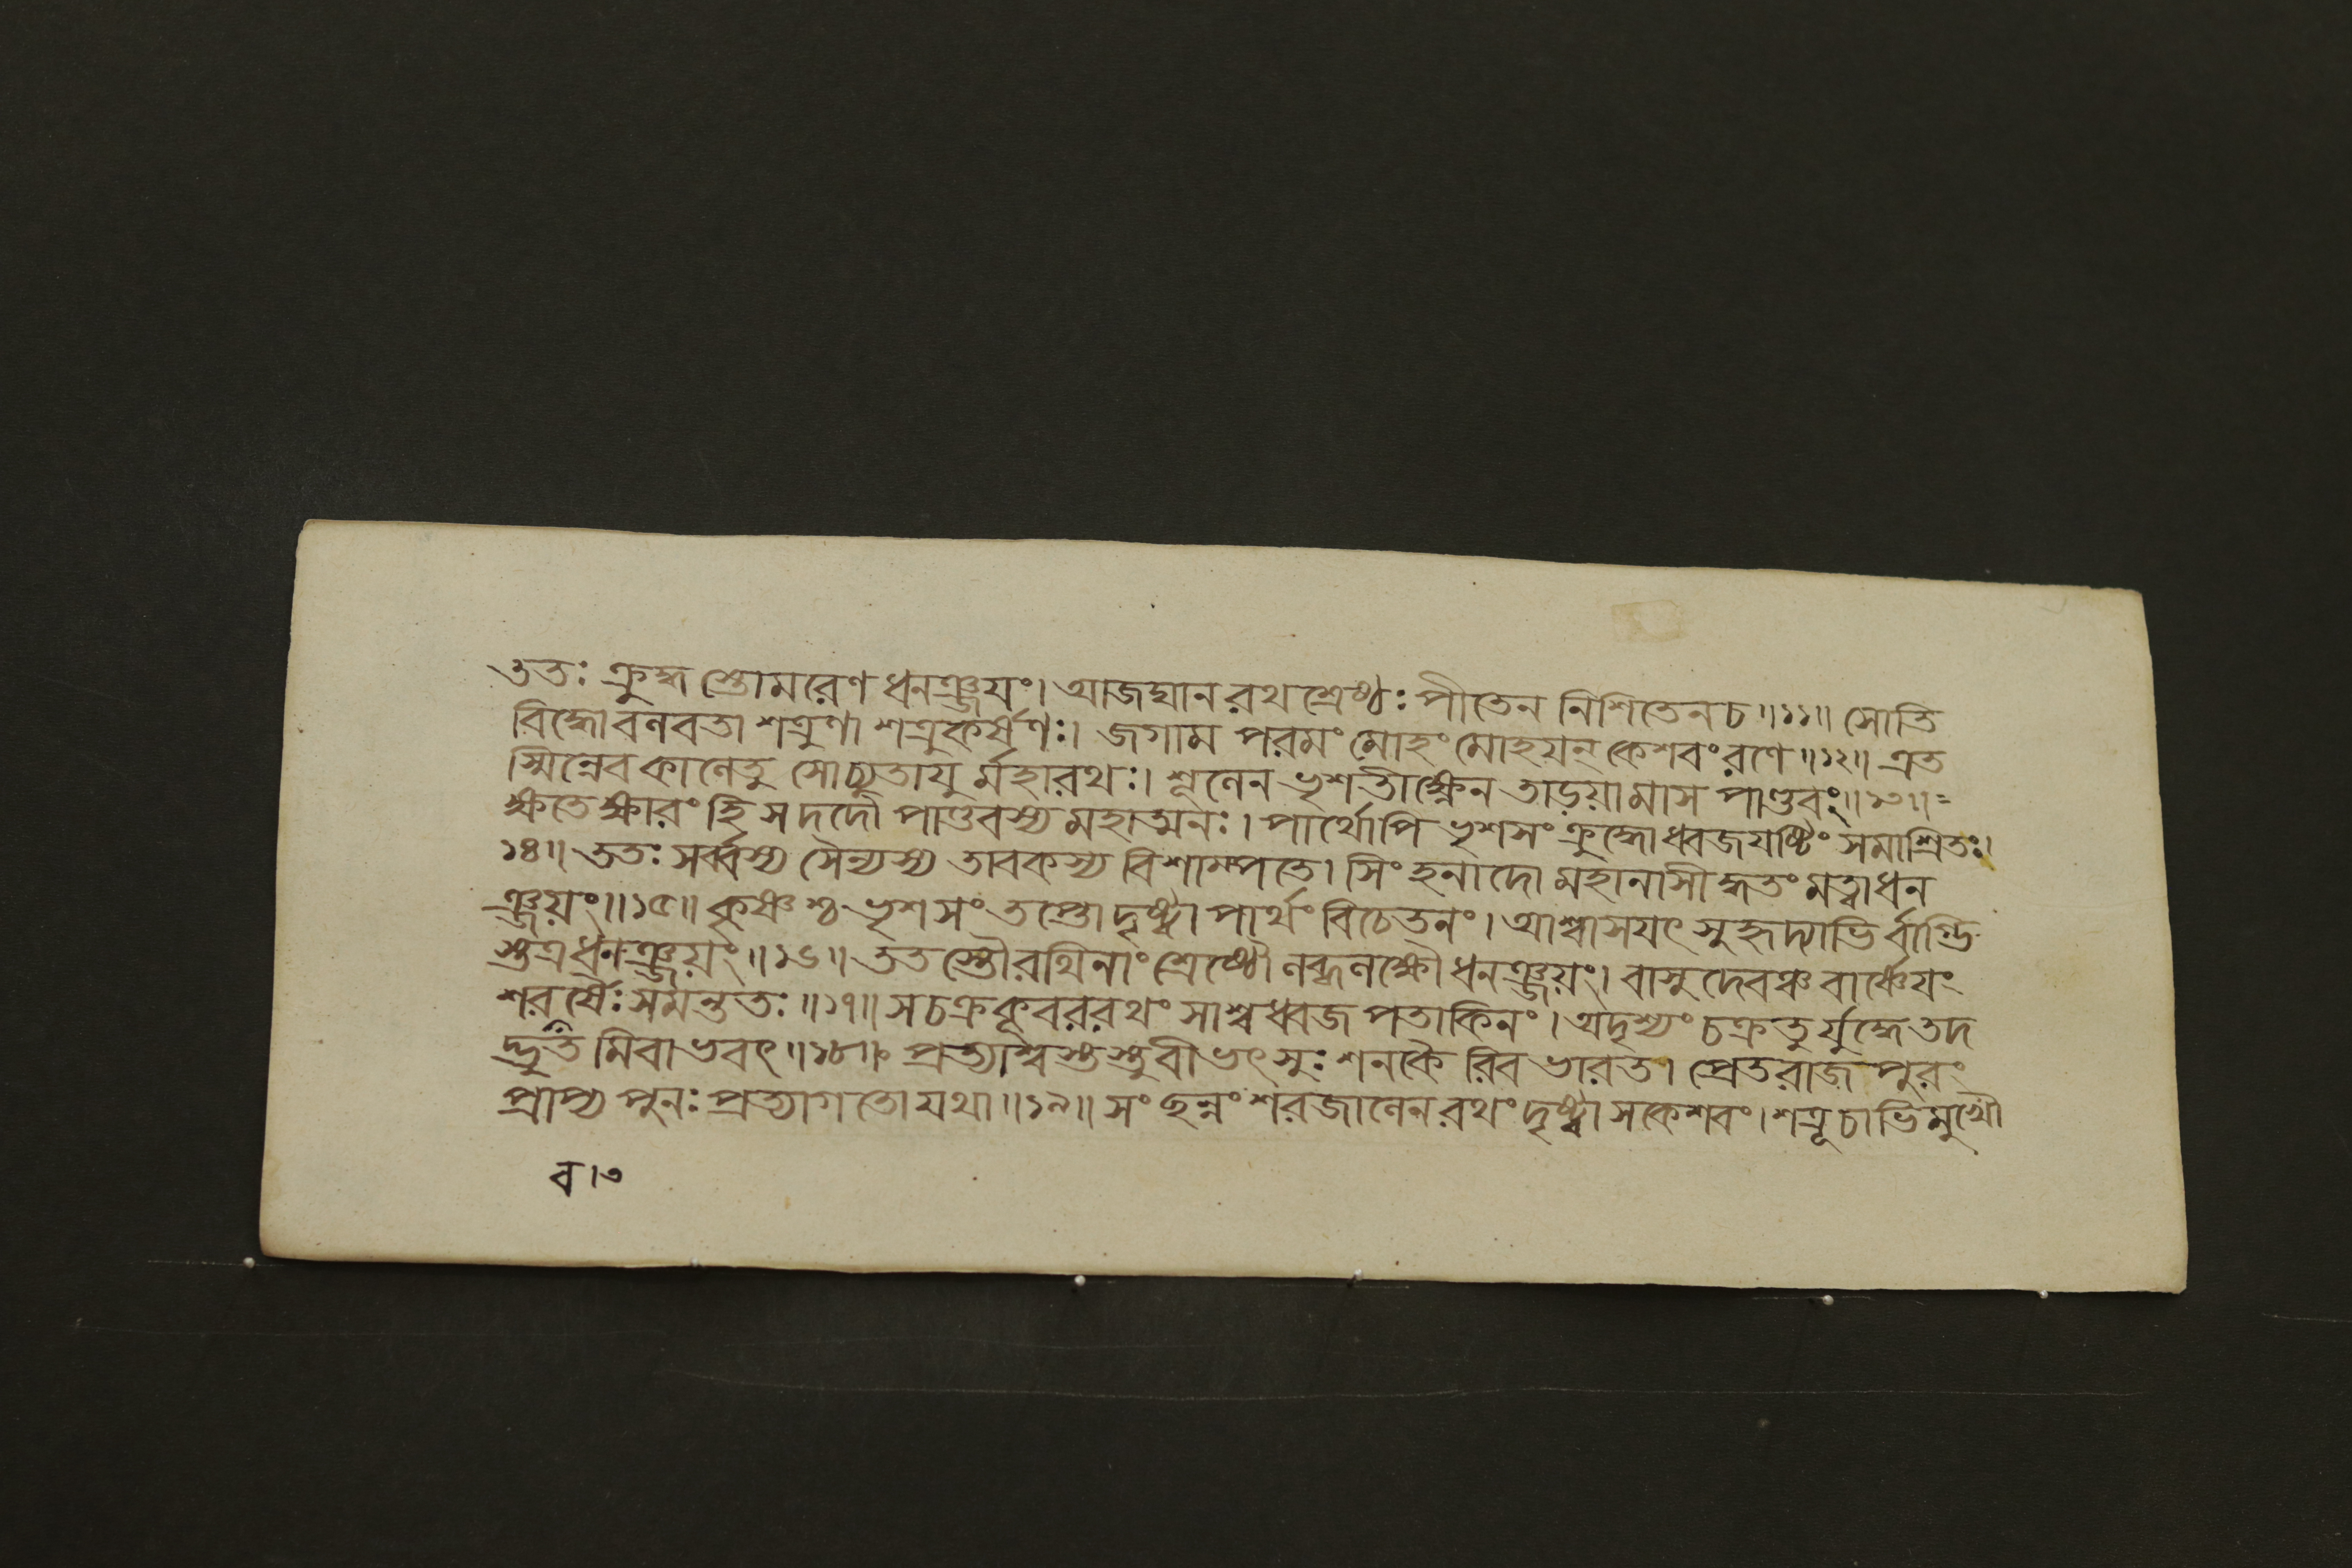 ততঃ ক্রুদ্ধ স্তোমরেণ ধনঞ্জয়ং। আজঘান রথশ্রেষ্ঠঃ পীতেন নিশিতেন চ॥১১॥ সোতি
বিদ্ধো বলবতা শত্রুণা শত্রুকর্ষণঃ। জগাম পরমং মোহং মোহয়ন্ কেশবং রণে॥১২॥ এত
স্মিন্নেব কালেতু সোচ্যুতায়ু র্মহারথঃ। শূলেন ভৃশতীক্ষ্ণেন তাড়য়ামাস পাণ্ডবং॥১৩॥=
ক্ষতে ক্ষারং হি স দদৌ পাণ্ডবস্য মহাত্মনঃ। পার্থোপি ভৃশসংক্রুদ্ধো ধ্বজযষ্টিং সমাশ্রিতঃ।
১৪॥ ততঃ সর্ব্বস্য সৈন্যস্য তাবকস্য বিশাম্পতে। সিংহনাদো মহানাসীদ্ধতং মত্বা ধন
ঞ্জয়ং॥১৫॥ কৃষ্ণশ্চ ভৃশসংতপ্তো দৃষ্ট্বা পার্থং বিচেতনং। আশ্বাসয়ৎ সুহৃদ্যাভি র্বাগ্ভি
স্তত্র ধনঞ্জয়ং॥১৬॥ তত স্তৌ রথিনাং শ্রেষ্ঠৌ লব্ধলক্ষৌ ধনঞ্জয়ং। বাসুদেবঞ্চ বার্ষ্ণেয়ং
শরবর্ষৈঃ সমন্ততঃ॥১৭॥ সচক্রকূবররথং সাশ্বধ্বজপতাকিনং। অদৃশ্যং চক্রতু র্যুদ্ধে তদ
দ্ভুত মিবাভবৎ॥১৮॥ প্রত্যাশ্বস্তস্তু বীভৎসুঃ শনকৈ রিব ভারত। প্রেতরাজপুরং
প্রাপ্য পুনঃ প্রত্যাগতো যথা॥১৯॥ সংছন্নং শরজালেন রথং দৃষ্ট্বা সকেশবং। শত্রূ চাভিমুখৌ
ব।৩